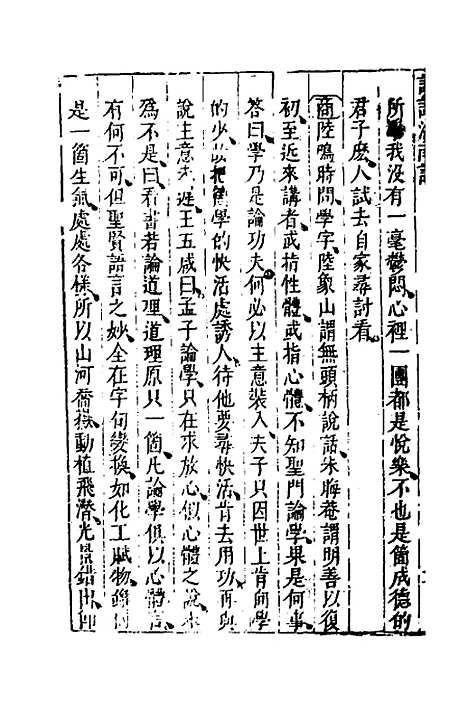 所學我沒有一毫鬱悶心裡一團都是悅樂不也是箇成德的
君子麽人試去自家尋討看
商陸鳴時問學字陸象山謂無頭柄說話朱晦菴謂明善以復
初至近來講者或指性體或指心體不知聖門論學果是何事
答曰學乃是論功夫何必以主意裝入夫子只因世上肯向學
的少故把箇學的快活處誘人待他要尋快活肯去用功再與
說主意未遲王五成曰孟子論學只在求放心似心體之說未
為不是曰看書若論道理道理原只一箇凡論學俱以心體言
有何不可但聖賢語言之妙全在字句變換如化工賦物
是一箇生氣處處各樣所以山河喬嶽動植飛潛光景錯出